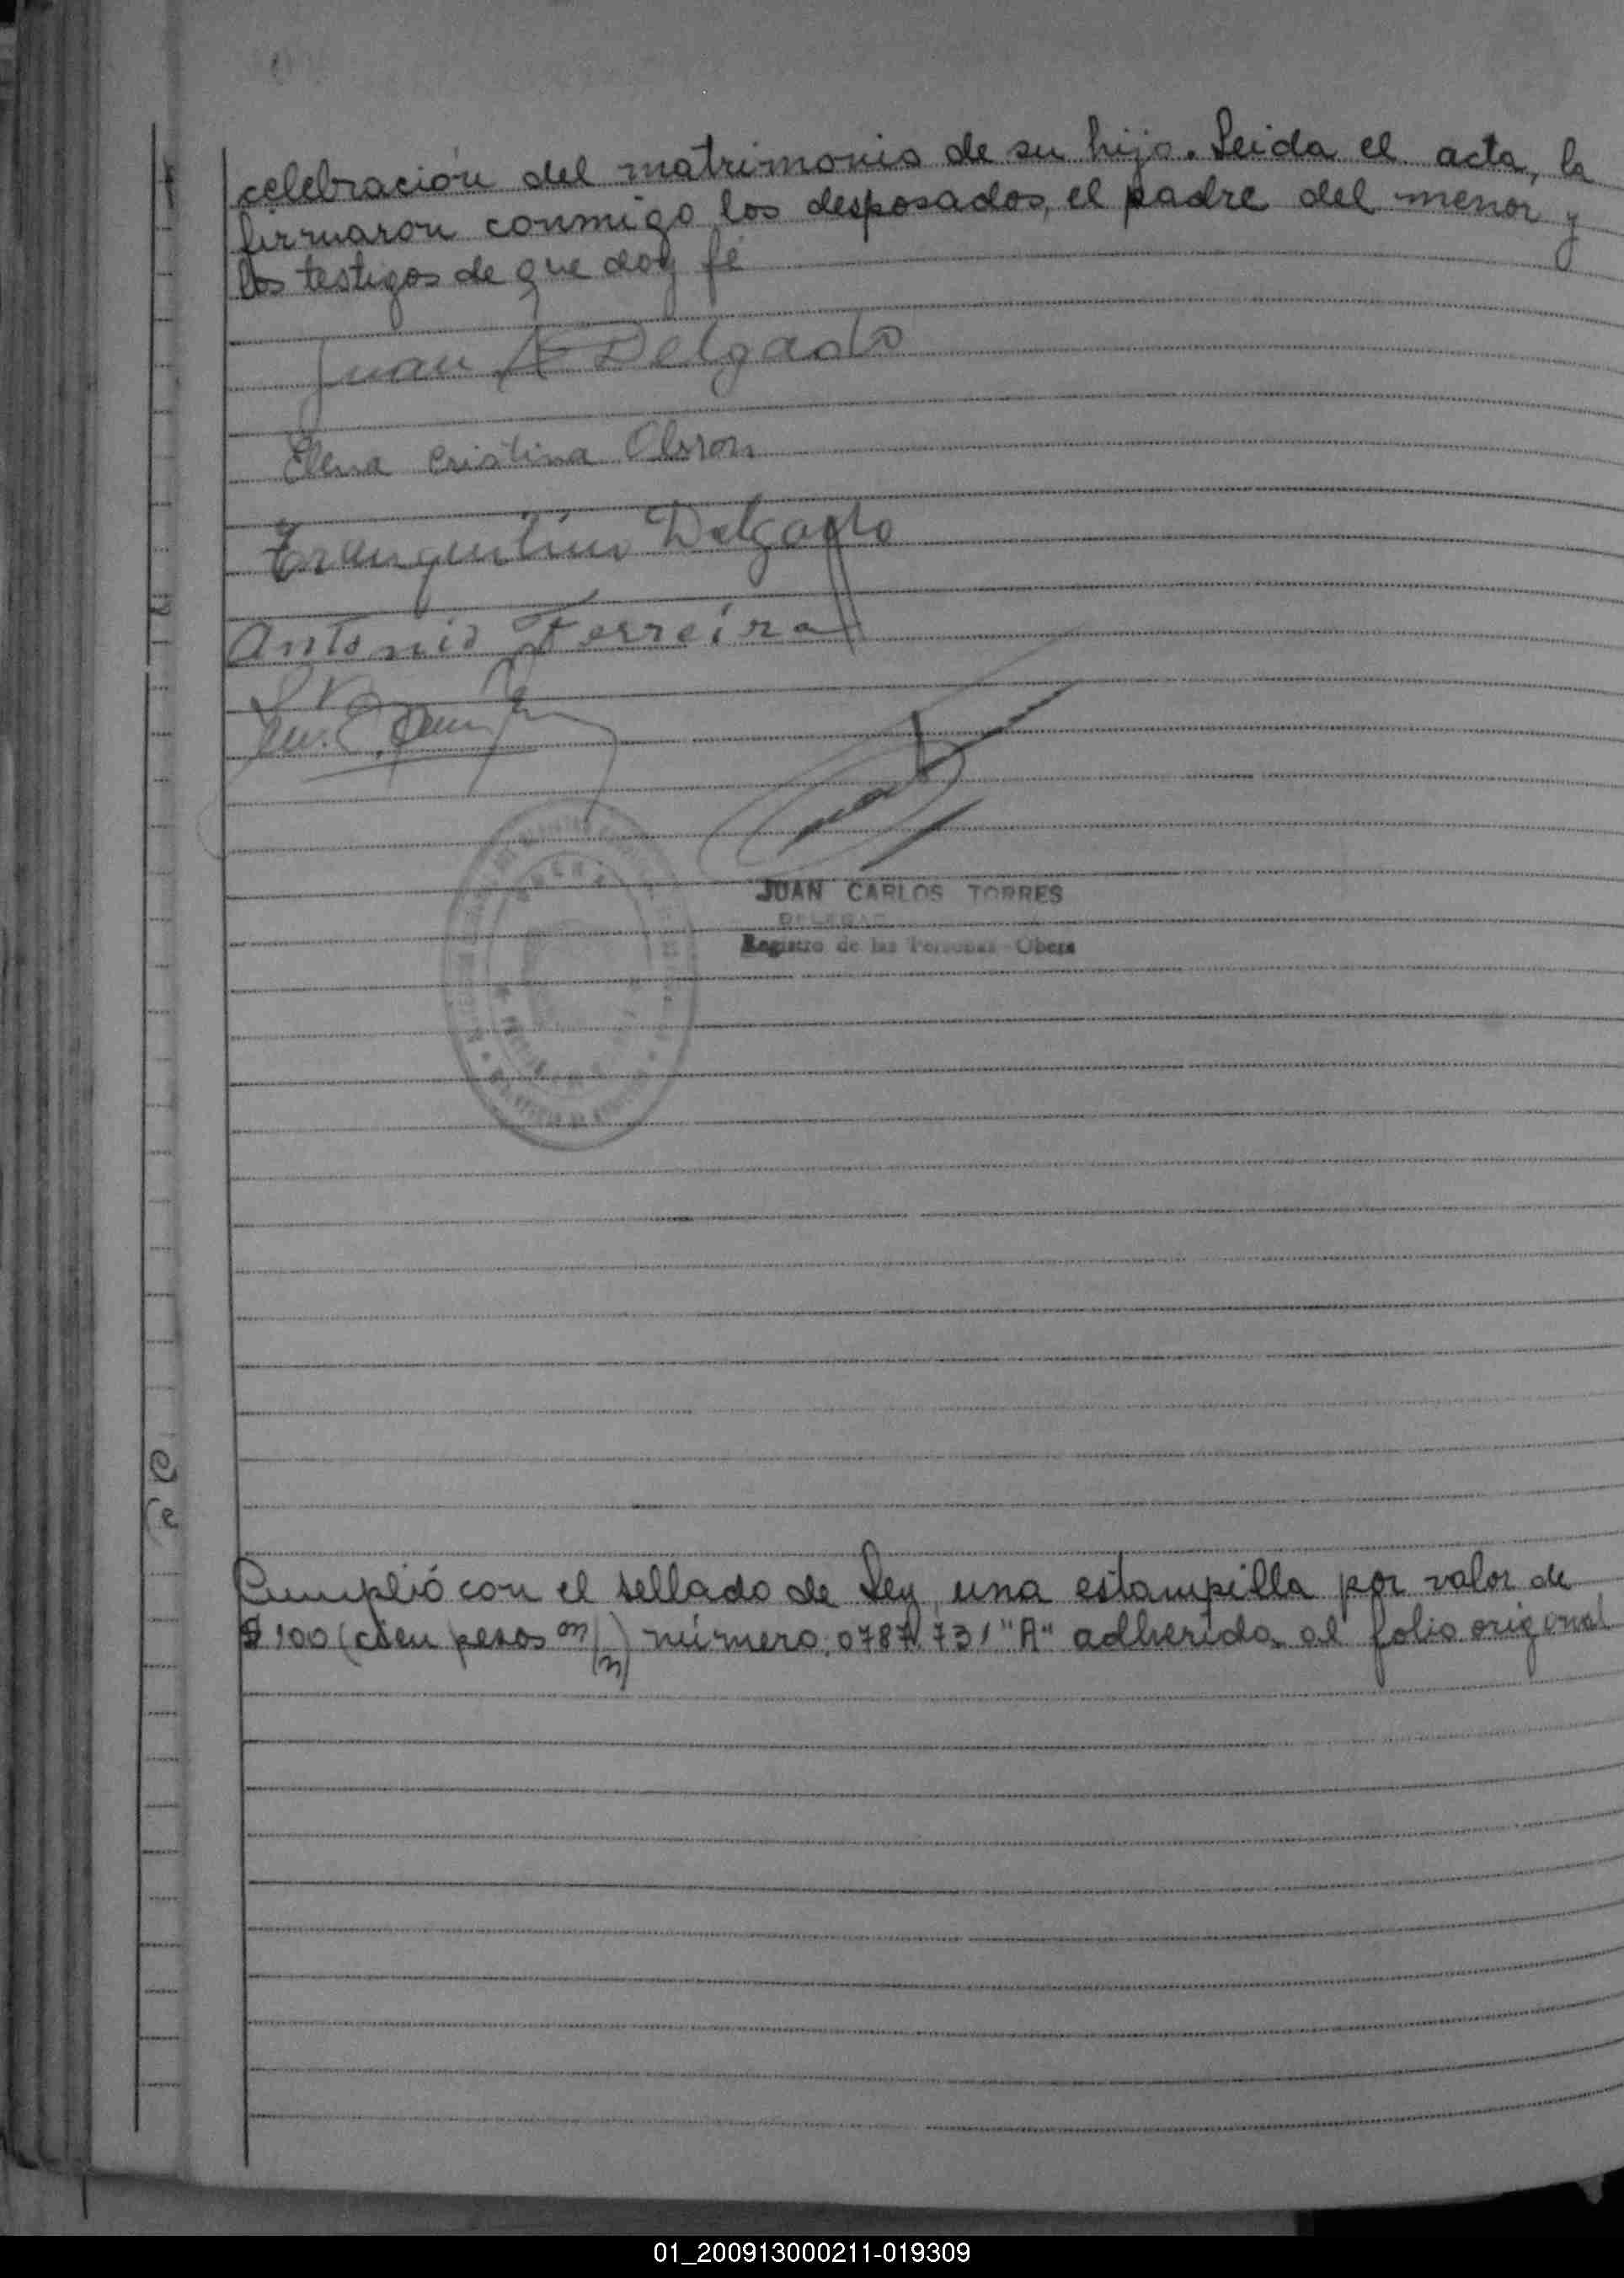 celebración del matrimonio de su hijo. Leida el acta, la
firmaron conmigo los desposados, el padre del menor y
los testigos de que doy fé
Juan A Delgado
Elena Cristina Olsson
Tranquilino Delgado
Antonio Ferreira
JUAN CARLOS TORRES
Registro de las Personas - Obera
Cumplió con el sellado de Ley, una estampilla por valor de
$ 100 (cien pesos m/n) número: 0787.731 "A" adherida al folio original
01_200913000211-019309